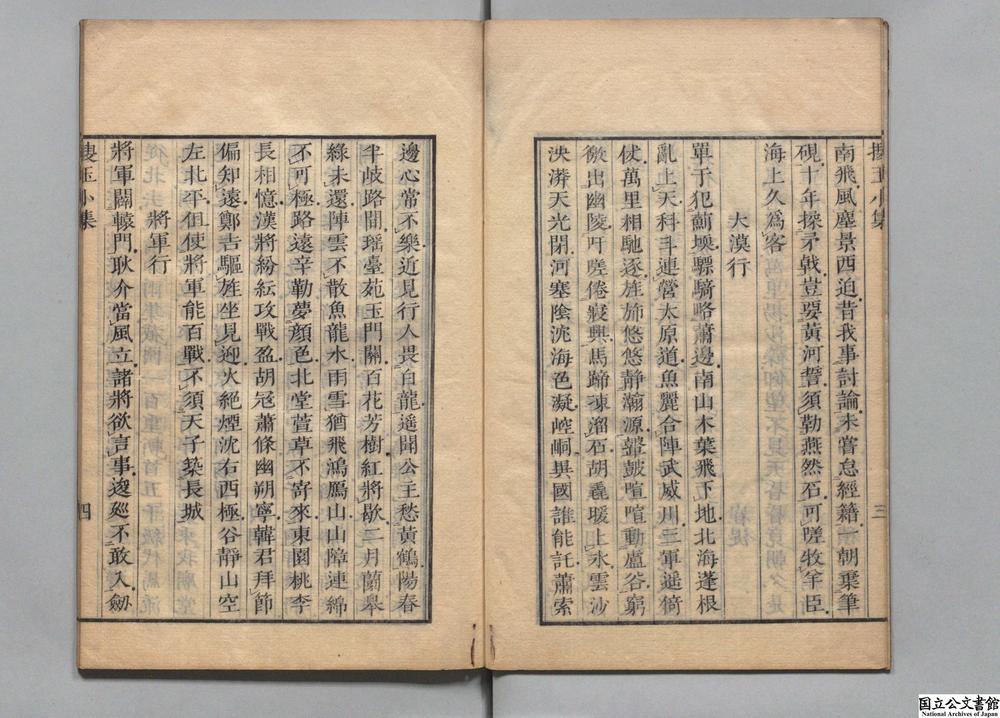 搜玉小集 三
南飛風塵景西迫昔我事討論未嘗怠經籍一朝棄筆
硯十年操矛戟豈要黃河誓須勒燕然石可嗟牧羊臣
海上久爲客
大漠行
單于犯薊壖驃騎略蕭邊南山木葉飛下地北海蓬根
亂上天科斗連營太原道魚麗合陣武威川三軍遥倚
仗萬里相馳逐旌旆悠悠靜瀚源鼙鼓喧喧動盧谷窮
徼出幽陵吁嗟倦寢興馬蹄凍溜石胡毳暖上氷雲沙
泱漭天光閉河塞陰沈海色凝崆峒異國誰能託蕭索
邊心常不樂近見行人畏白龍遥聞公主愁黃鶴陽春
半岐路間瑶臺苑玉門關百花芳樹紅將歇二月蘭皋
綠未還陣雲不散魚龍水雨雪猶飛鴻鴈山山障連綿
不可極路遠辛勤夢顏色北堂萱草不寄來東園桃李
長相憶漢將紛紜攻戰盈胡冠蕭條幽朔寧韓君拜節
偏知遠鄭吉驅旌坐見迎火絕煙沈右西極谷靜山空
左北平但使將軍能百戰不須天子築長城
將軍行
將軍闢轅門耿介當風立諸將欲言事逡廵不敢入劒
搜玉小集 四
国立公文書館
National Archives of Japan